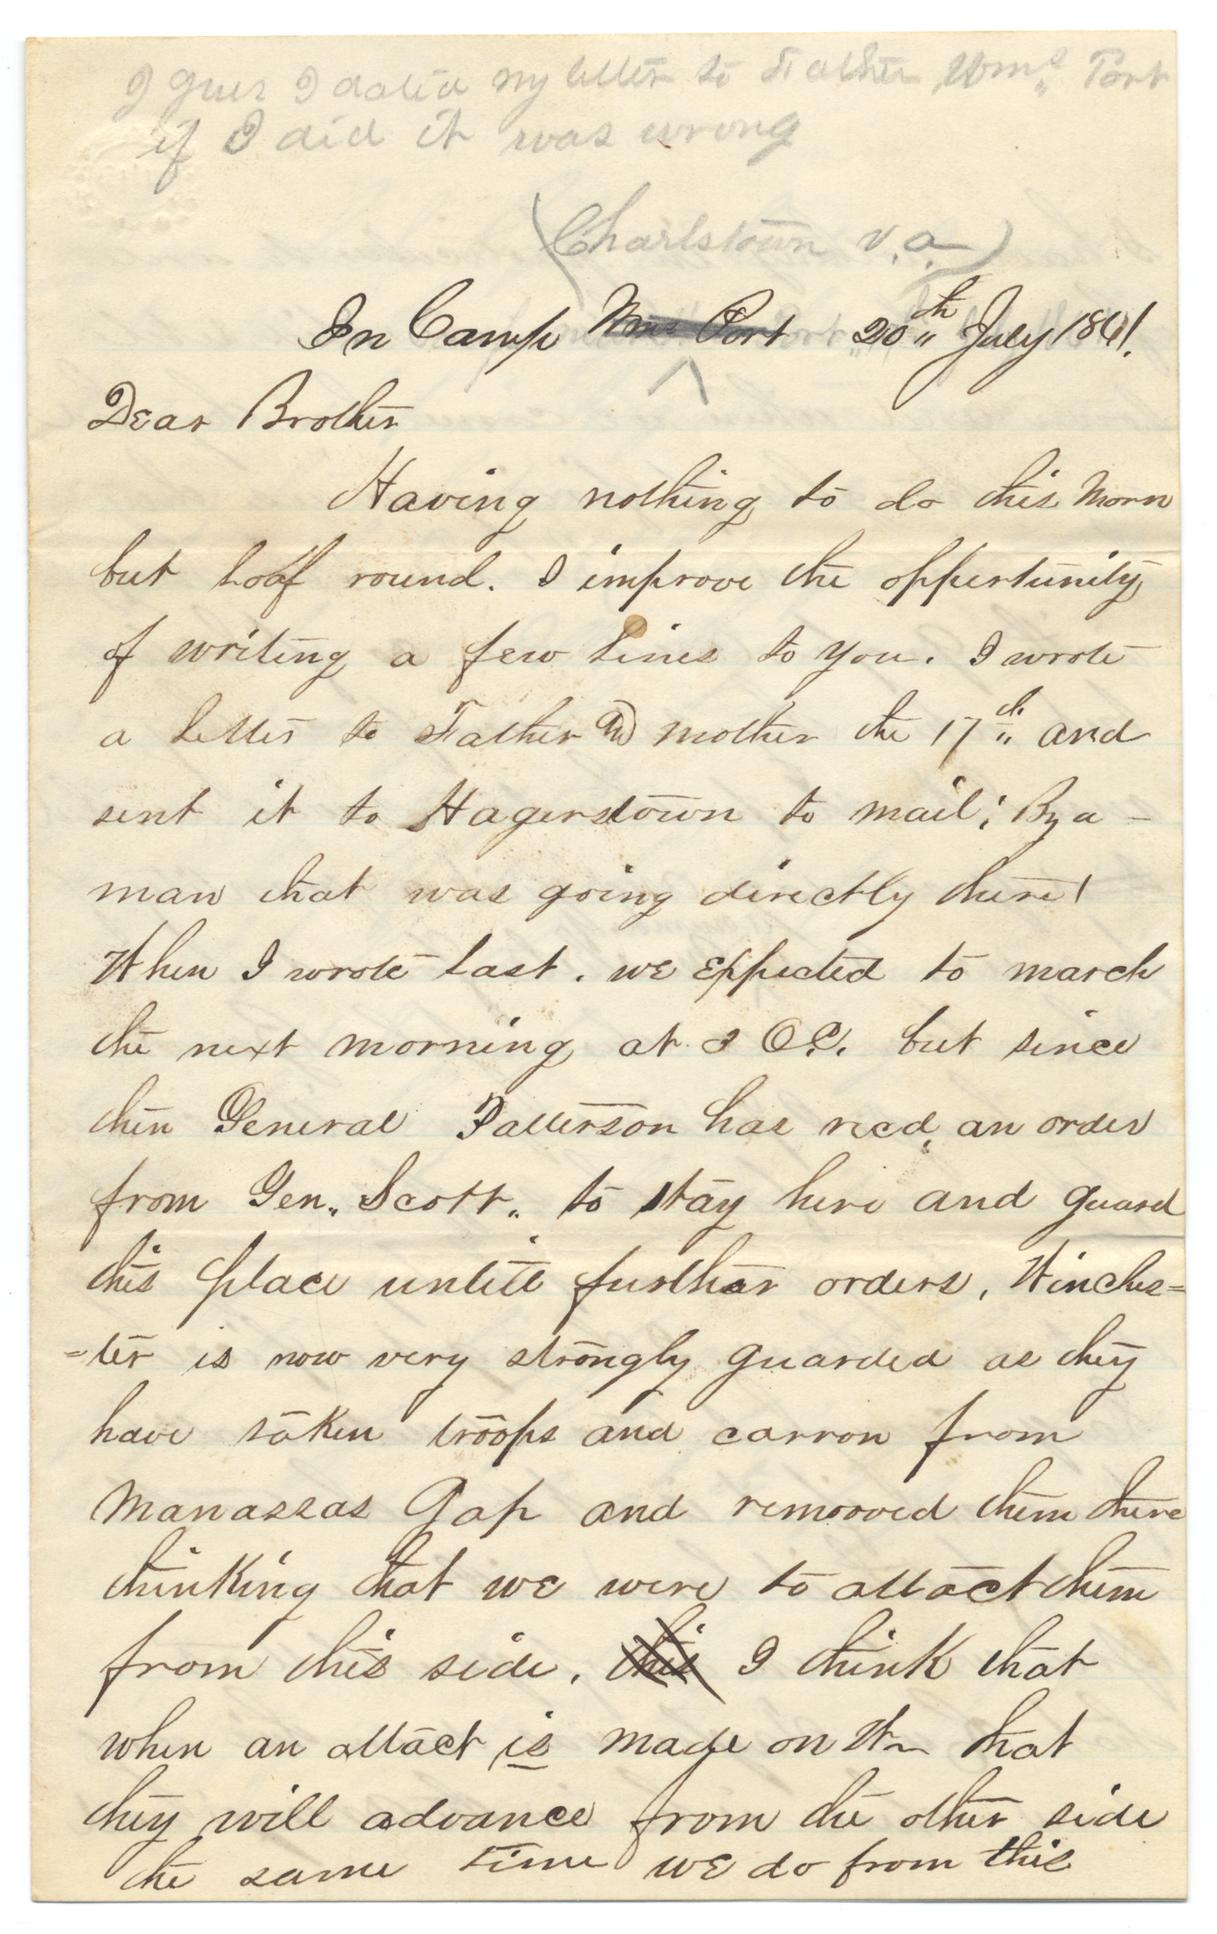 I gues I dated my letter to Father Wms. Port
if I did it was wrong
(Charlstown v.a.)
In Camp Wms Port 20th July 1861.
Dear Brother
Having nothing to do this Morn
but loaf round. I improve the oppertunity
of writing a few lines to you. I wrote
a letter to Father & mother the 17th and
sent it to Hagerstown to mail; By a -
man that was going directly there!
When I wrote last. we Expected to march
the next morning at 2 O.C. but since
then General Patterson has recd, an order
from Gen,, Scott,, to stay here and guard
this place untill further orders, Winches=
=ter is now very strongly guarded as they
have taken troops and carron from
Manassas Gap and remooved them there
thinking that we were to attact them
from this side. this I think that
when an attact is made on W that
they will advance from the other side
the same time we do from this